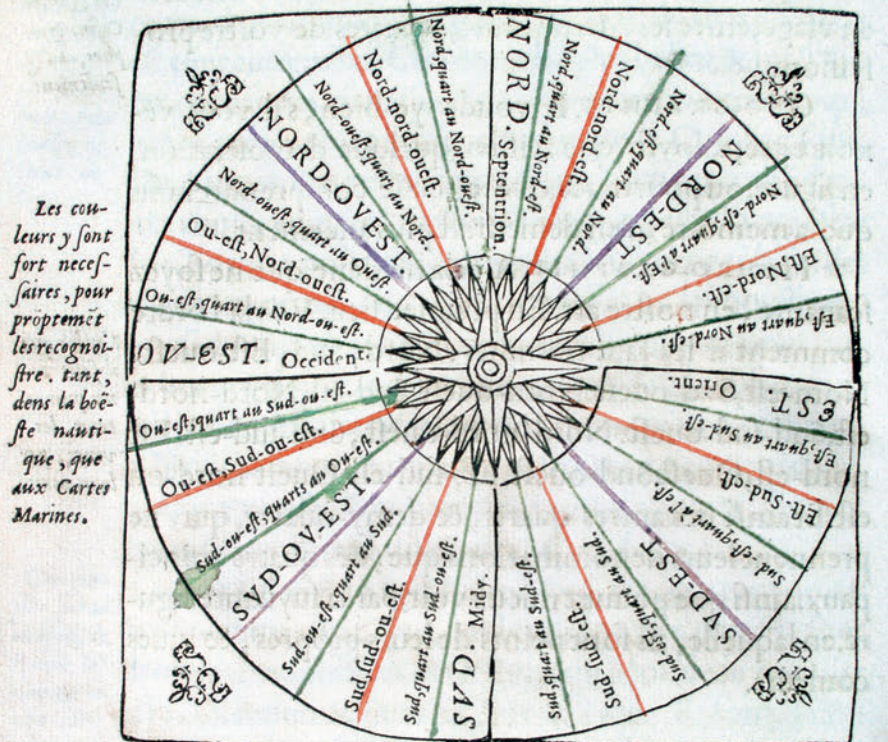 Les cou-
leurs y ſont
fort neceſ-
ſaires, pour
proptemẽt
les recognoi-
ſtre. tant,
dens la boë-
ſte nauti-
que, que
aux Cartes
Marines.
NORD Septentrion
Nord, quart au Nord-eſt.
Nord-nord-eſt.
Nord-eſt, quart au Nord.
NORDEST
Nord-eſt, quart à l'Eſt.
Eſt, Nord-eſt.
Eſt, quart au Nord-eſt.
EST Orient.
Eſt, quart au Sud-eſt.
Eſt-Sud-eſt.
Sud-eſt, quart à l'eſt.
SVDEST
Sud-eſt, quart au Sud.
Sud-ſud-eſt.
Sud, quart au Sud-eſt.
SVD. Midy.
Sud, quart au Sud-ou-eſt.
Sud, ſud-ou-eſt.
Sud-ou-eſt, quart au Sud.
SVD-OV-EST
Sud-ou-eſt, quart au Ou-eſt.
Ou-eſt, Sud-ou-eſt.
Ou-eſt, quart au Sud-ou-eſt.
OVEST. Occident.
Ou-eſt, quart au Nord-ou-eſt.
Ou-eſt, Nord-oueſt.
Nord-oueſt, quart au Oueſt.
NORDOVEST
Nort-oueſt, quart au Nord.
Nord-nord-oueſt.
Nord, quart au Nord-oueſt.